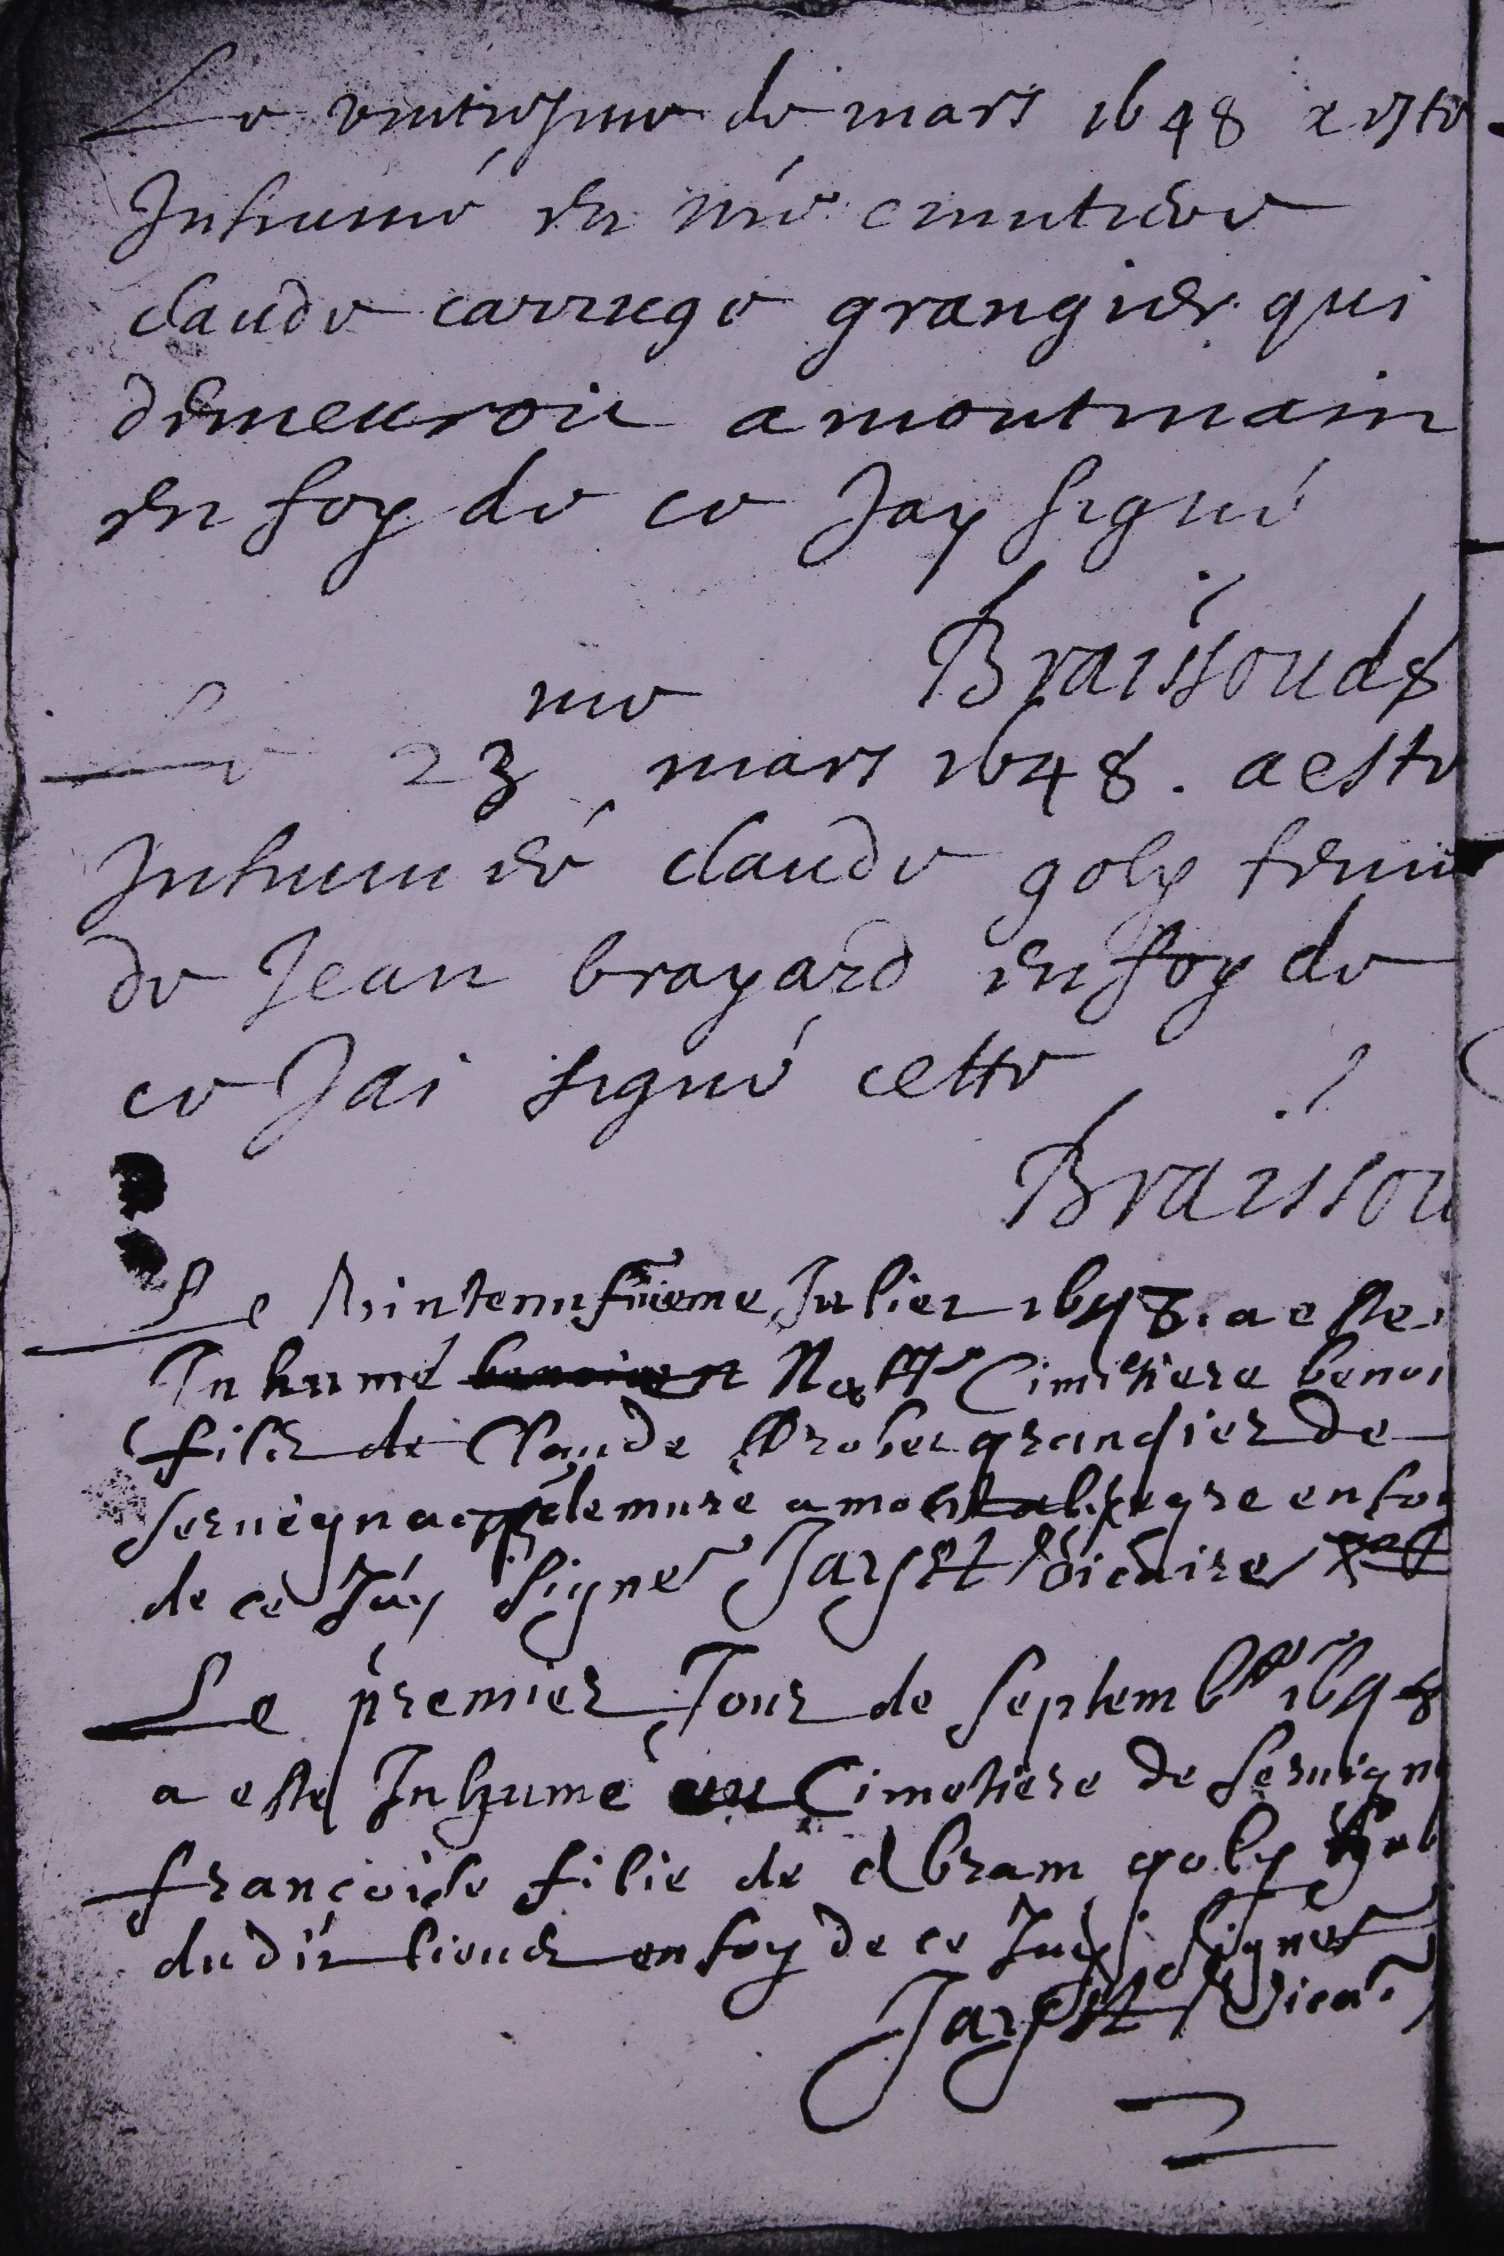 Le vintiesme de mars 1648 a este
Inhumé en nre cimitiere
claude carruge grangier qui
demeuroit a montmain
en foy de ce Jay signé
Braissoud
Le 23me mars 1648. a este
Inhumée claude goly femme
de Jean brayard en foy de
ce Jai signé cette
Braissou
Le Julier 1648. a este
Inhumé Cimetiere benoi
fils de Claude grangier de
seruigna demure a en foy
de ce Jay signe Jarset vicaire
Le premier Jour de septembre 1648
a este Inhumé au Cimetiere de seruign
françoise fillie de Abram goly
dudit lieu en foy de ce Jay signe
Jarset Vicai